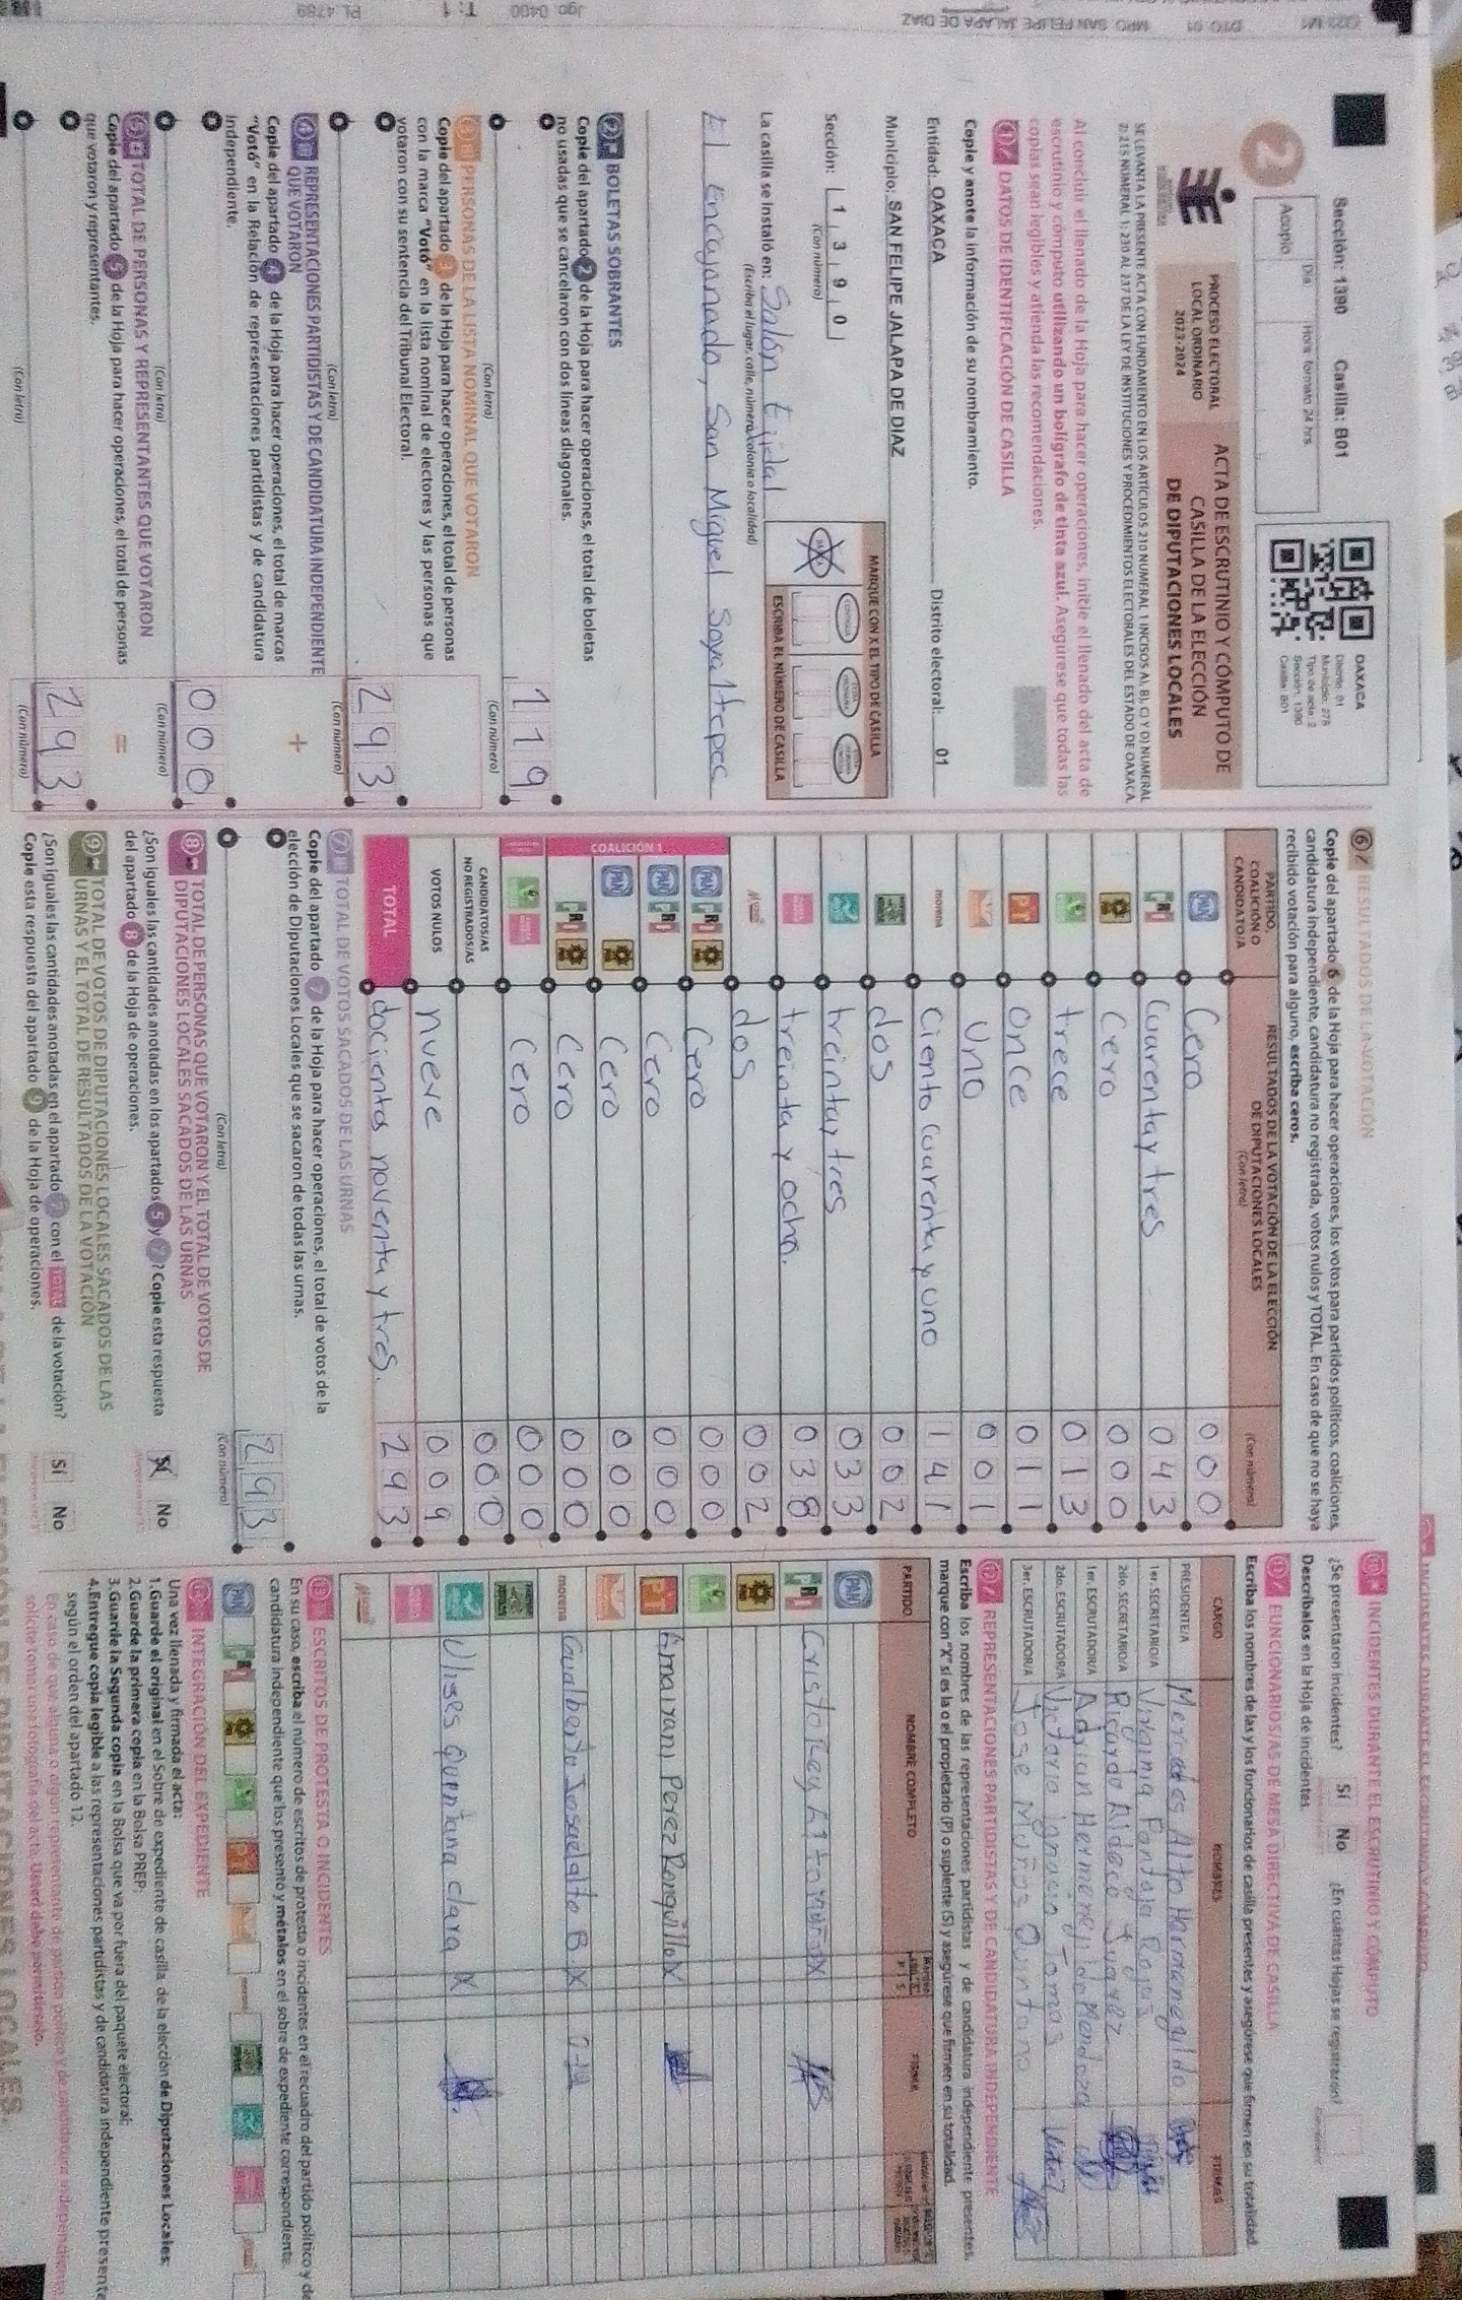 Sección: 1390 Casilla: B01
Día Hora: formato 24 hrs.
Acopio
2
OAXACA
Distrito: 01
Municipio: 275
Tipo de acta: 2
Sección: 1390
Casilla: B01
PROCESO ELECTORAL
LOCAL ORDINARIO
2023-2024
ACTA DE ESCRUTINIO Y CÓMPUTO DE
CASILLA DE LA ELECCIÓN
DE DIPUTACIONES LOCALES
SE LEVANTA LA PRESENTE ACTA CON FUNDAMENTO EN LOS ARTÍCULOS 210 NUMERAL 1 INCISOS A), B), C) Y D) NUMERAL
2; 215 NUMERAL 1; 230 AL 237 DE LA LEY DE INSTITUCIONES Y PROCEDIMIENTOS ELECTORALES DEL ESTADO DE OAXACA.
Al concluir el llenado de la Hoja para hacer operaciones, inicie el llenado del acta de
escrutinio y cómputo utilizando un bolígrafo de tinta azul. Asegúrese que todas las
copias sean legibles y atienda las recomendaciones.
1 DATOS DE IDENTIFICACIÓN DE CASILLA
Copie y anote la información de su nombramiento.
Entidad: OAXACA Distrito electoral: 01
Municipio: SAN FELIPE JALAPA DE DIAZ
Sección: 1 3 9 0
(Con número)
MARQUE CON X EL TIPO DE CASILLA
ESCRIBA EL NÚMERO DE CASILLA
La casilla se instaló en: Salón Ejidal
(Escriba el lugar, calle, número, colonia o localidad)
El Encajonado, San Miguel Soyaltepec
2 BOLETAS SOBRANTES
Copie del apartado 2 de la Hoja para hacer operaciones, el total de boletas
no usadas que se cancelaron con dos líneas diagonales.
119
(Con letra) (Con número)
3 PERSONAS DE LA LISTA NOMINAL QUE VOTARON
Copie del apartado 3 de la Hoja para hacer operaciones, el total de personas
con la marca "Votó" en la lista nominal de electores y las personas que
votaron con su sentencia del Tribunal Electoral.
293
(Con letra) (Con número)
4 REPRESENTACIONES PARTIDISTAS Y DE CANDIDATURA INDEPENDIENTE
QUE VOTARON
+
Copie del apartado 4 de la Hoja para hacer operaciones, el total de marcas
"Votó" en la Relación de representaciones partidistas y de candidatura
independiente.
000
(Con letra) (Con número)
5 TOTAL DE PERSONAS Y REPRESENTANTES QUE VOTARON
=
Copie del apartado 5 de la Hoja para hacer operaciones, el total de personas
que votaron y representantes.
293
(Con letra) (Con número)
6 RESULTADOS DE LA VOTACIÓN
Copie del apartado 6 de la Hoja para hacer operaciones, los votos para partidos políticos, coaliciones,
candidatura independiente, candidatura no registrada, votos nulos y TOTAL. En caso de que no se haya
recibido votación para alguno, escriba ceros.
PARTIDO,
COALICIÓN O
CANDIDATO/A
RESULTADOS DE LA VOTACIÓN DE LA ELECCIÓN
DE DIPUTACIONES LOCALES
(Con letra) (Con número)
PAN Cero 000
PRI Cuarenta y tres 043
Cero 000
trece 013
PT once 011
Uno 001
morena Ciento Cuarenta y Uno 141
dos 002
treinta y tres 033
treinta y ocho. 038
dos 002
COALICIÓN 1
PAN PRI Cero 000
PAN PRI Cero 000
PAN Cero 000
PRI Cero 000
Cero 000
CANDIDATOS/AS
NO REGISTRADOS/AS 000
VOTOS NULOS nueve 009
TOTAL docientos noventa y tres. 293
7 TOTAL DE VOTOS SACADOS DE LAS URNAS
Copie del apartado 7 de la Hoja para hacer operaciones, el total de votos de la
elección de Diputaciones Locales que se sacaron de todas las urnas.
293
(Con letra) (Con número)
8 TOTAL DE PERSONAS QUE VOTARON Y EL TOTAL DE VOTOS DE
DIPUTACIONES LOCALES SACADOS DE LAS URNAS
¿Son iguales las cantidades anotadas en los apartados 5 y 7? Copie esta respuesta
del apartado 8 de la Hoja de operaciones.
Sí No
9 TOTAL DE VOTOS DE DIPUTACIONES LOCALES SACADOS DE LAS
URNAS Y EL TOTAL DE RESULTADOS DE LA VOTACIÓN
¿Son iguales las cantidades anotadas en el apartado 7 con el TOTAL de la votación?
Copie esta respuesta del apartado 9 de la Hoja de operaciones.
Sí No
INCIDENTES DURANTE EL ESCRUTINIO Y CÓMPUTO
¿Se presentaron incidentes? Sí No ¿En cuántas Hojas se registraron?
Descríbalos en la Hoja de incidentes.
11 FUNCIONARIOS/AS DE MESA DIRECTIVA DE CASILLA
Escriba los nombres de las y los funcionarios de casilla presentes y asegúrese que firmen en su totalidad.
CARGO NOMBRES FIRMAS
PRESIDENTE/A Mercedes Alto Hermenegildo
1er. SECRETARIO/A Virginia Pantoja Rojas
2do. SECRETARIO/A Ricardo Aldeco Juarez
1er. ESCRUTADOR/A Adrian Hermenegildo Mendoza
2do. ESCRUTADOR/A Victoria Ignacio Tomas
3er. ESCRUTADOR/A Jose Muños Quintano
12 REPRESENTACIONES PARTIDISTAS Y DE CANDIDATURA INDEPENDIENTE
Escriba los nombres de las representaciones partidistas y de candidatura independiente presentes,
marque con "X" si es la o el propietario (P) o suplente (S) y asegúrese que firmen en su totalidad.
PARTIDO NOMBRE COMPLETO P S FIRMA
PAN
PRI X
PT Amairani Perez Ronquillo X
morena Gualberto X
Ulises Quintana clara X
13 ESCRITOS DE PROTESTA O INCIDENTES
En su caso, escriba el número de escritos de protesta o incidentes en el recuadro del partido político y de
candidatura independiente que los presentó y métalos en el sobre de expediente correspondiente.
INTEGRACIÓN DEL EXPEDIENTE
Una vez llenada y firmada el acta:
1.Guarde el original en el Sobre de expediente de casilla de la elección de Diputaciones Locales;
2.Guarde la primera copia en la Bolsa PREP;
3.Guarde la Segunda copia en la Bolsa que va por fuera del paquete electoral;
4.Entregue copia legible a las representaciones partidistas y de candidatura independiente presentes
según el orden del apartado 12.